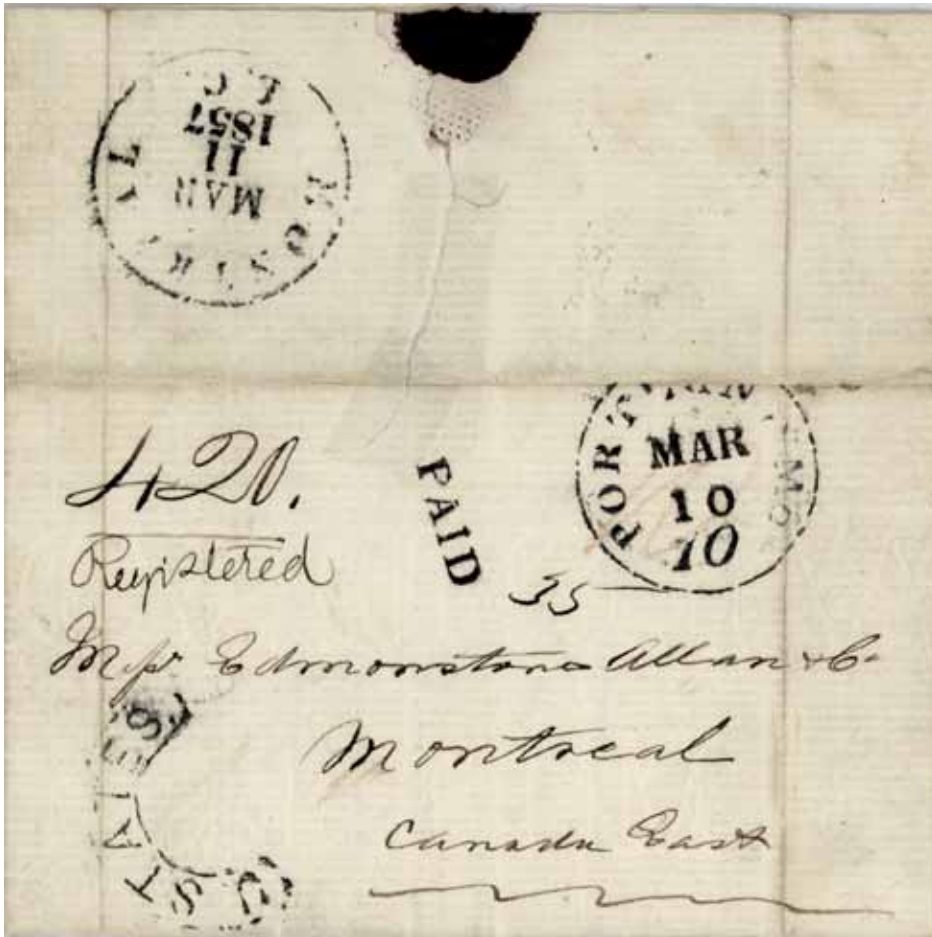 MONTREAL
MAR
11
1857
L C
PORTLAND Me
MAR
10
10
420.
PAID
Registered
35
Messrs Edmonstone Allan & Co
Montreal
Canada East
U. STATES